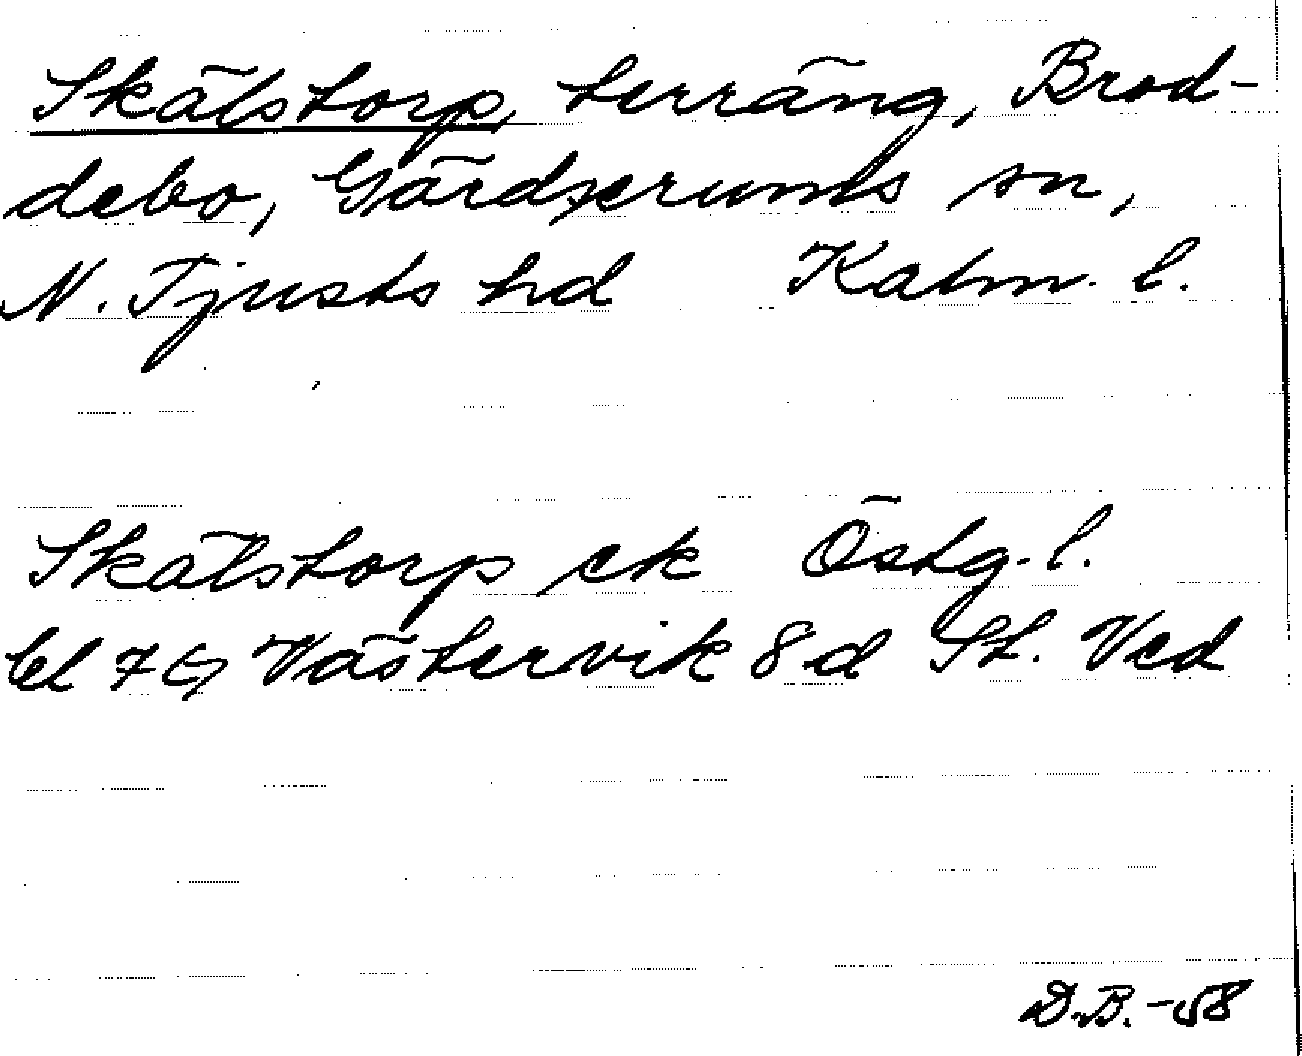 Skälstorp, terräng, Brod-
debo, Gärdserums sn,
N. Tjusts hd Kalm. l.
Skälstorp ek Östg. l.
bl 7 G Västervik 8 d St. Ved
D.B. -58